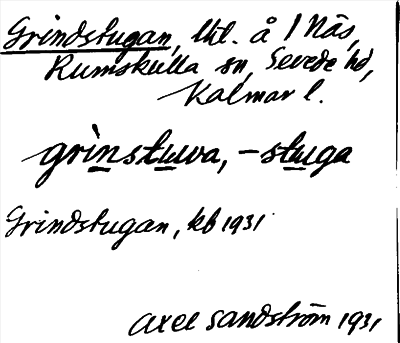 Grindstugan, lht. å 1 Näs,
Rumskulla sn, Sevede hd,
Kalmar l.
grinstuva, -stuga
Grindstugan, kb 1931
Axel Sandström 1931